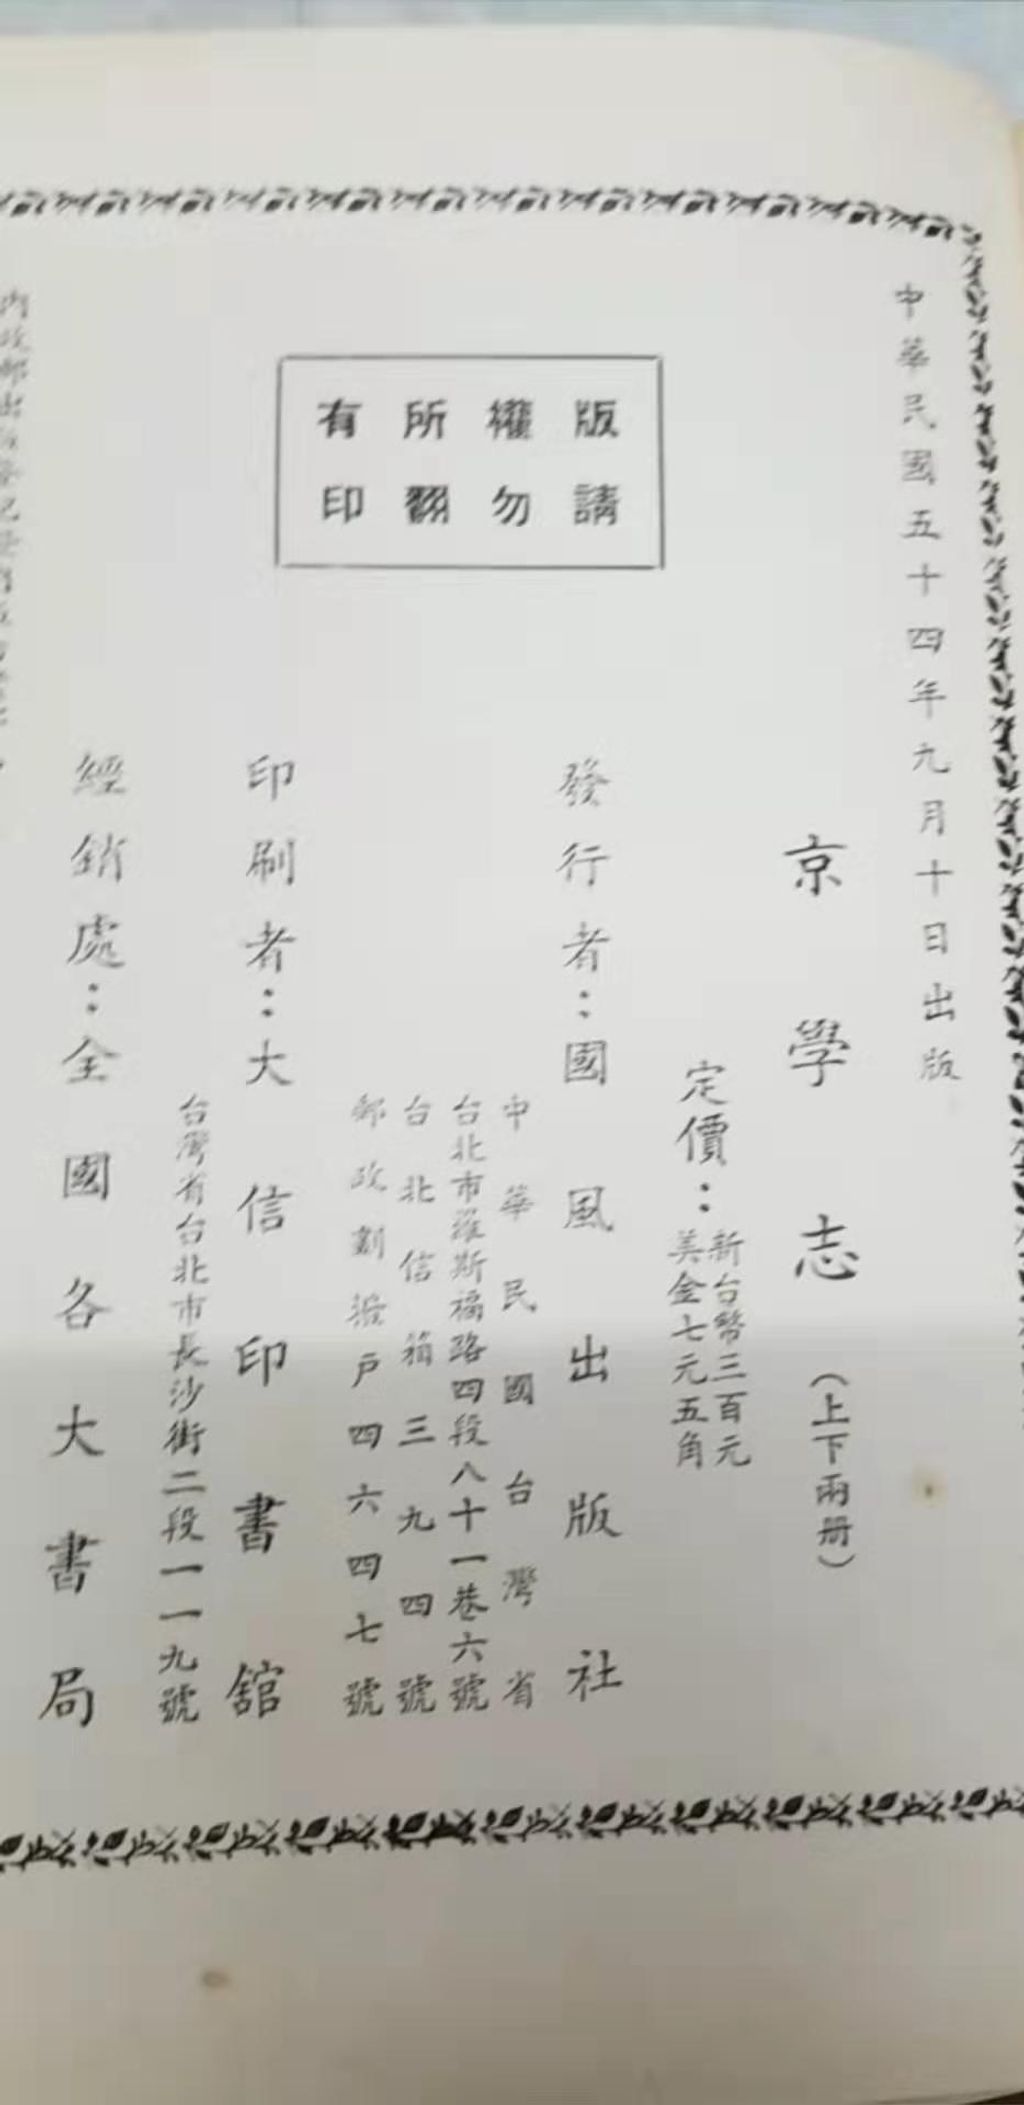 中華民國五十四年九月十日出版
京學志（上下兩册）
定價：新台幣三百元
美金七元五角
發行者：國風出版社
中華民國台灣省
台北市羅斯福路四段八十一巷六號
台北信箱三九四號
郵政劃撥戶四六四七號
版權所有
請勿翻印
印刷者：大信印書館
台灣省台北市長沙街二段一一九號
經銷處：全國各大書局